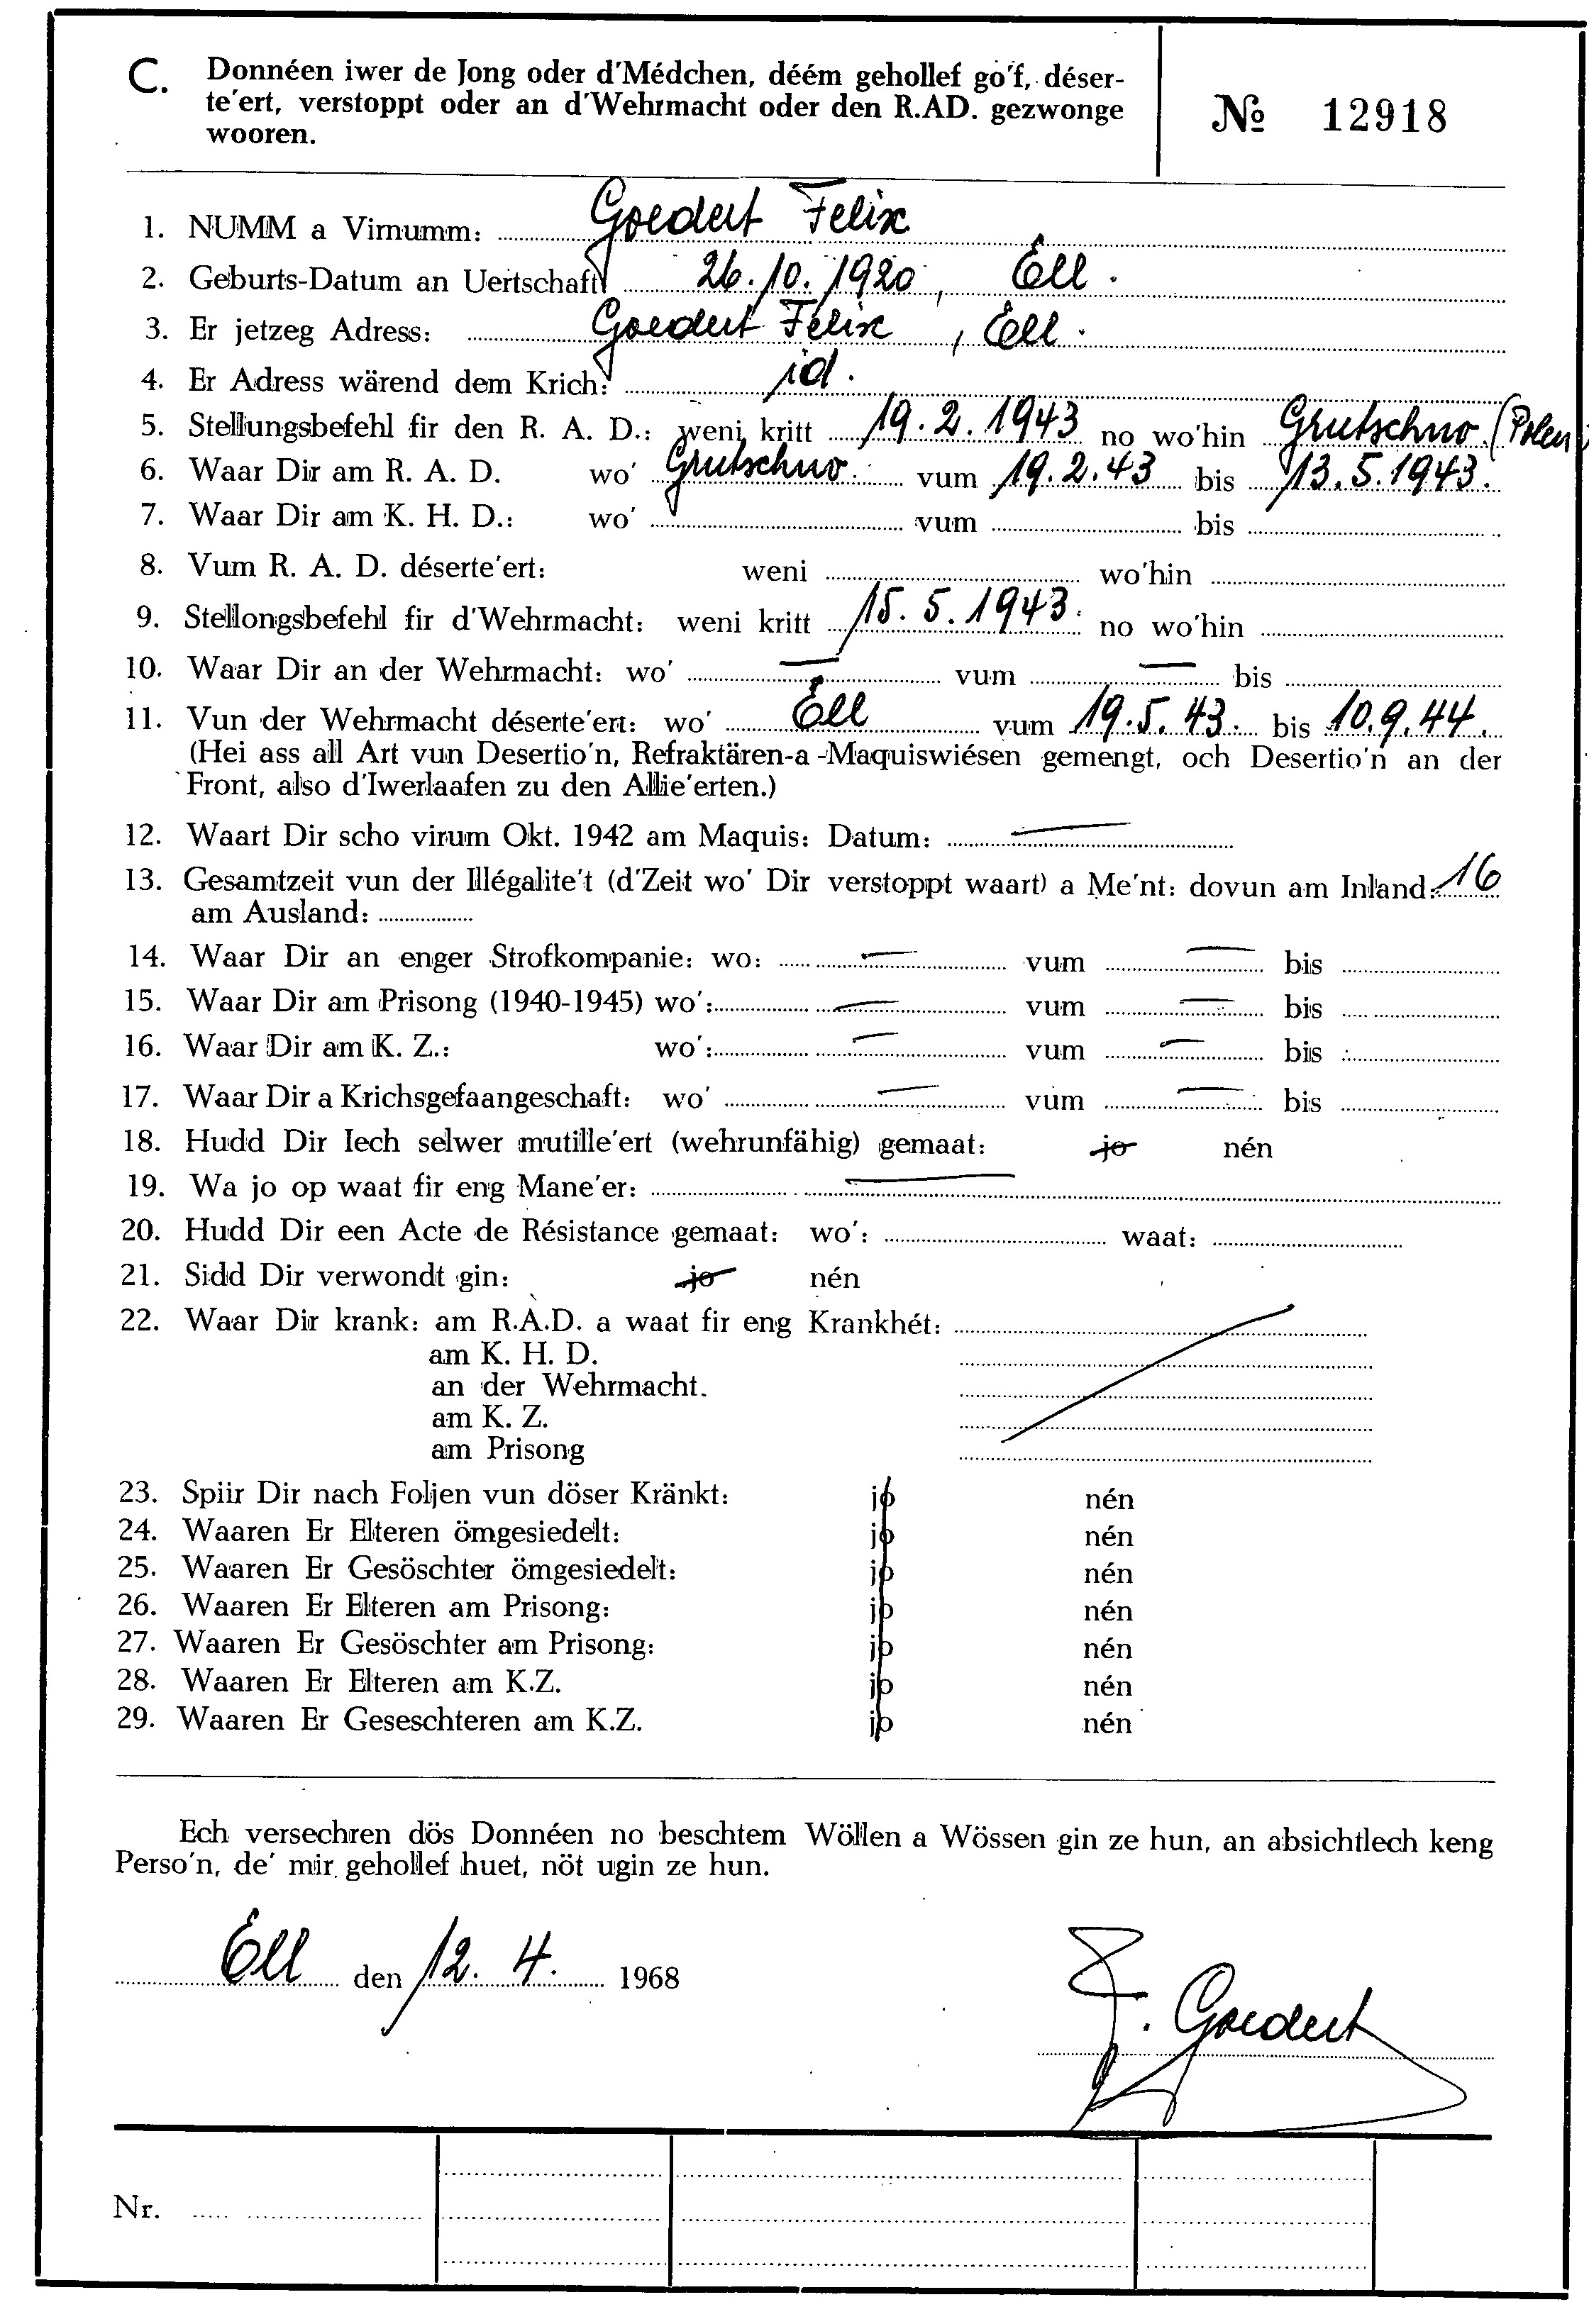 C. Donnéen iwer de Jong oder d'Médchen, déém gehollef go'f, déser-
te'ert, verstoppt oder an d'Wehrmacht oder den R.AD. gezwonge
wooren.
№ 12918
1. NUMM a Virnumm: Goedert Felix
2. Geburts-Datum an Uertschaft 26.10.1920, Ell.
3. Er jetzeg Adress: Goedert Felix, Ell.
4. Er Adress wärend dem Krich: id.
5. Stellungsbefehl fir den R. A. D.: weni kritt 19.2.1943 no wo'hin Grutschno (Polen)
6. Waar Dir am R. A. D. wo' Grutschno vum 19.2.43 bis 13.5.1943.
7. Waar Dir am K. H. D.: wo' vum bis
8. Vum R. A. D. déserte'ert: weni wo'hin
9. Stellongsbefehl fir d'Wehrmacht: weni kritt 15.5.1943. no wo'hin
10. Waar Dir an der Wehrmacht: wo' — vum — bis
11. Vun der Wehrmacht déserte'ert: wo' Ell vum 19.5.43. bis 10.9.44.
(Hei ass all Art vun Desertio'n, Refraktären-a-Maquiswiésen gemengt, och Desertio'n an der
Front, also d'Iwerlaafen zu den Allie'erten.)
12. Waart Dir scho virum Okt. 1942 am Maquis: Datum: —
13. Gesamtzeit vun der Illégalite't (d'Zeit wo' Dir verstoppt waart) a Me'nt: dovun am Inland: 16
am Ausland:
14. Waar Dir an enger Strofkompanie: wo: — vum — bis
15. Waar Dir am Prisong (1940-1945) wo': — vum — bis
16. Waar Dir am K. Z.: wo': — vum — bis
17. Waar Dir a Krichsgefaangeschaft: wo' — vum — bis
18. Hudd Dir Iech selwer mutille'ert (wehrunfähig) gemaat: jo nén
19. Wa jo op waat fir eng Mane'er: —
20. Hudd Dir een Acte de Résistance gemaat: wo': waat:
21. Sidd Dir verwondt gin: jo nén
22. Waar Dir krank: am R.A.D. a waat fir eng Krankhét:
am K. H. D.
an der Wehrmacht.
am K. Z.
am Prisong
23. Spiir Dir nach Foljen vun döser Kränkt: jo nén
24. Waaren Er Elteren ömgesiedelt: jo nén
25. Waaren Er Gesöschter ömgesiedelt: jo nén
26. Waaren Er Elteren am Prisong: jo nén
27. Waaren Er Gesöschter am Prisong: jo nén
28. Waaren Er Elteren am K.Z. jo nén
29. Waaren Er Geseschteren am K.Z. jo nén
Ech versechren dös Donnéen no beschtem Wöllen a Wössen gin ze hun, an absichtlech keng
Perso'n, de' mir gehollef huet, nöt ugin ze hun.
Ell den 12. 4. 1968
F. Goedert
Nr.